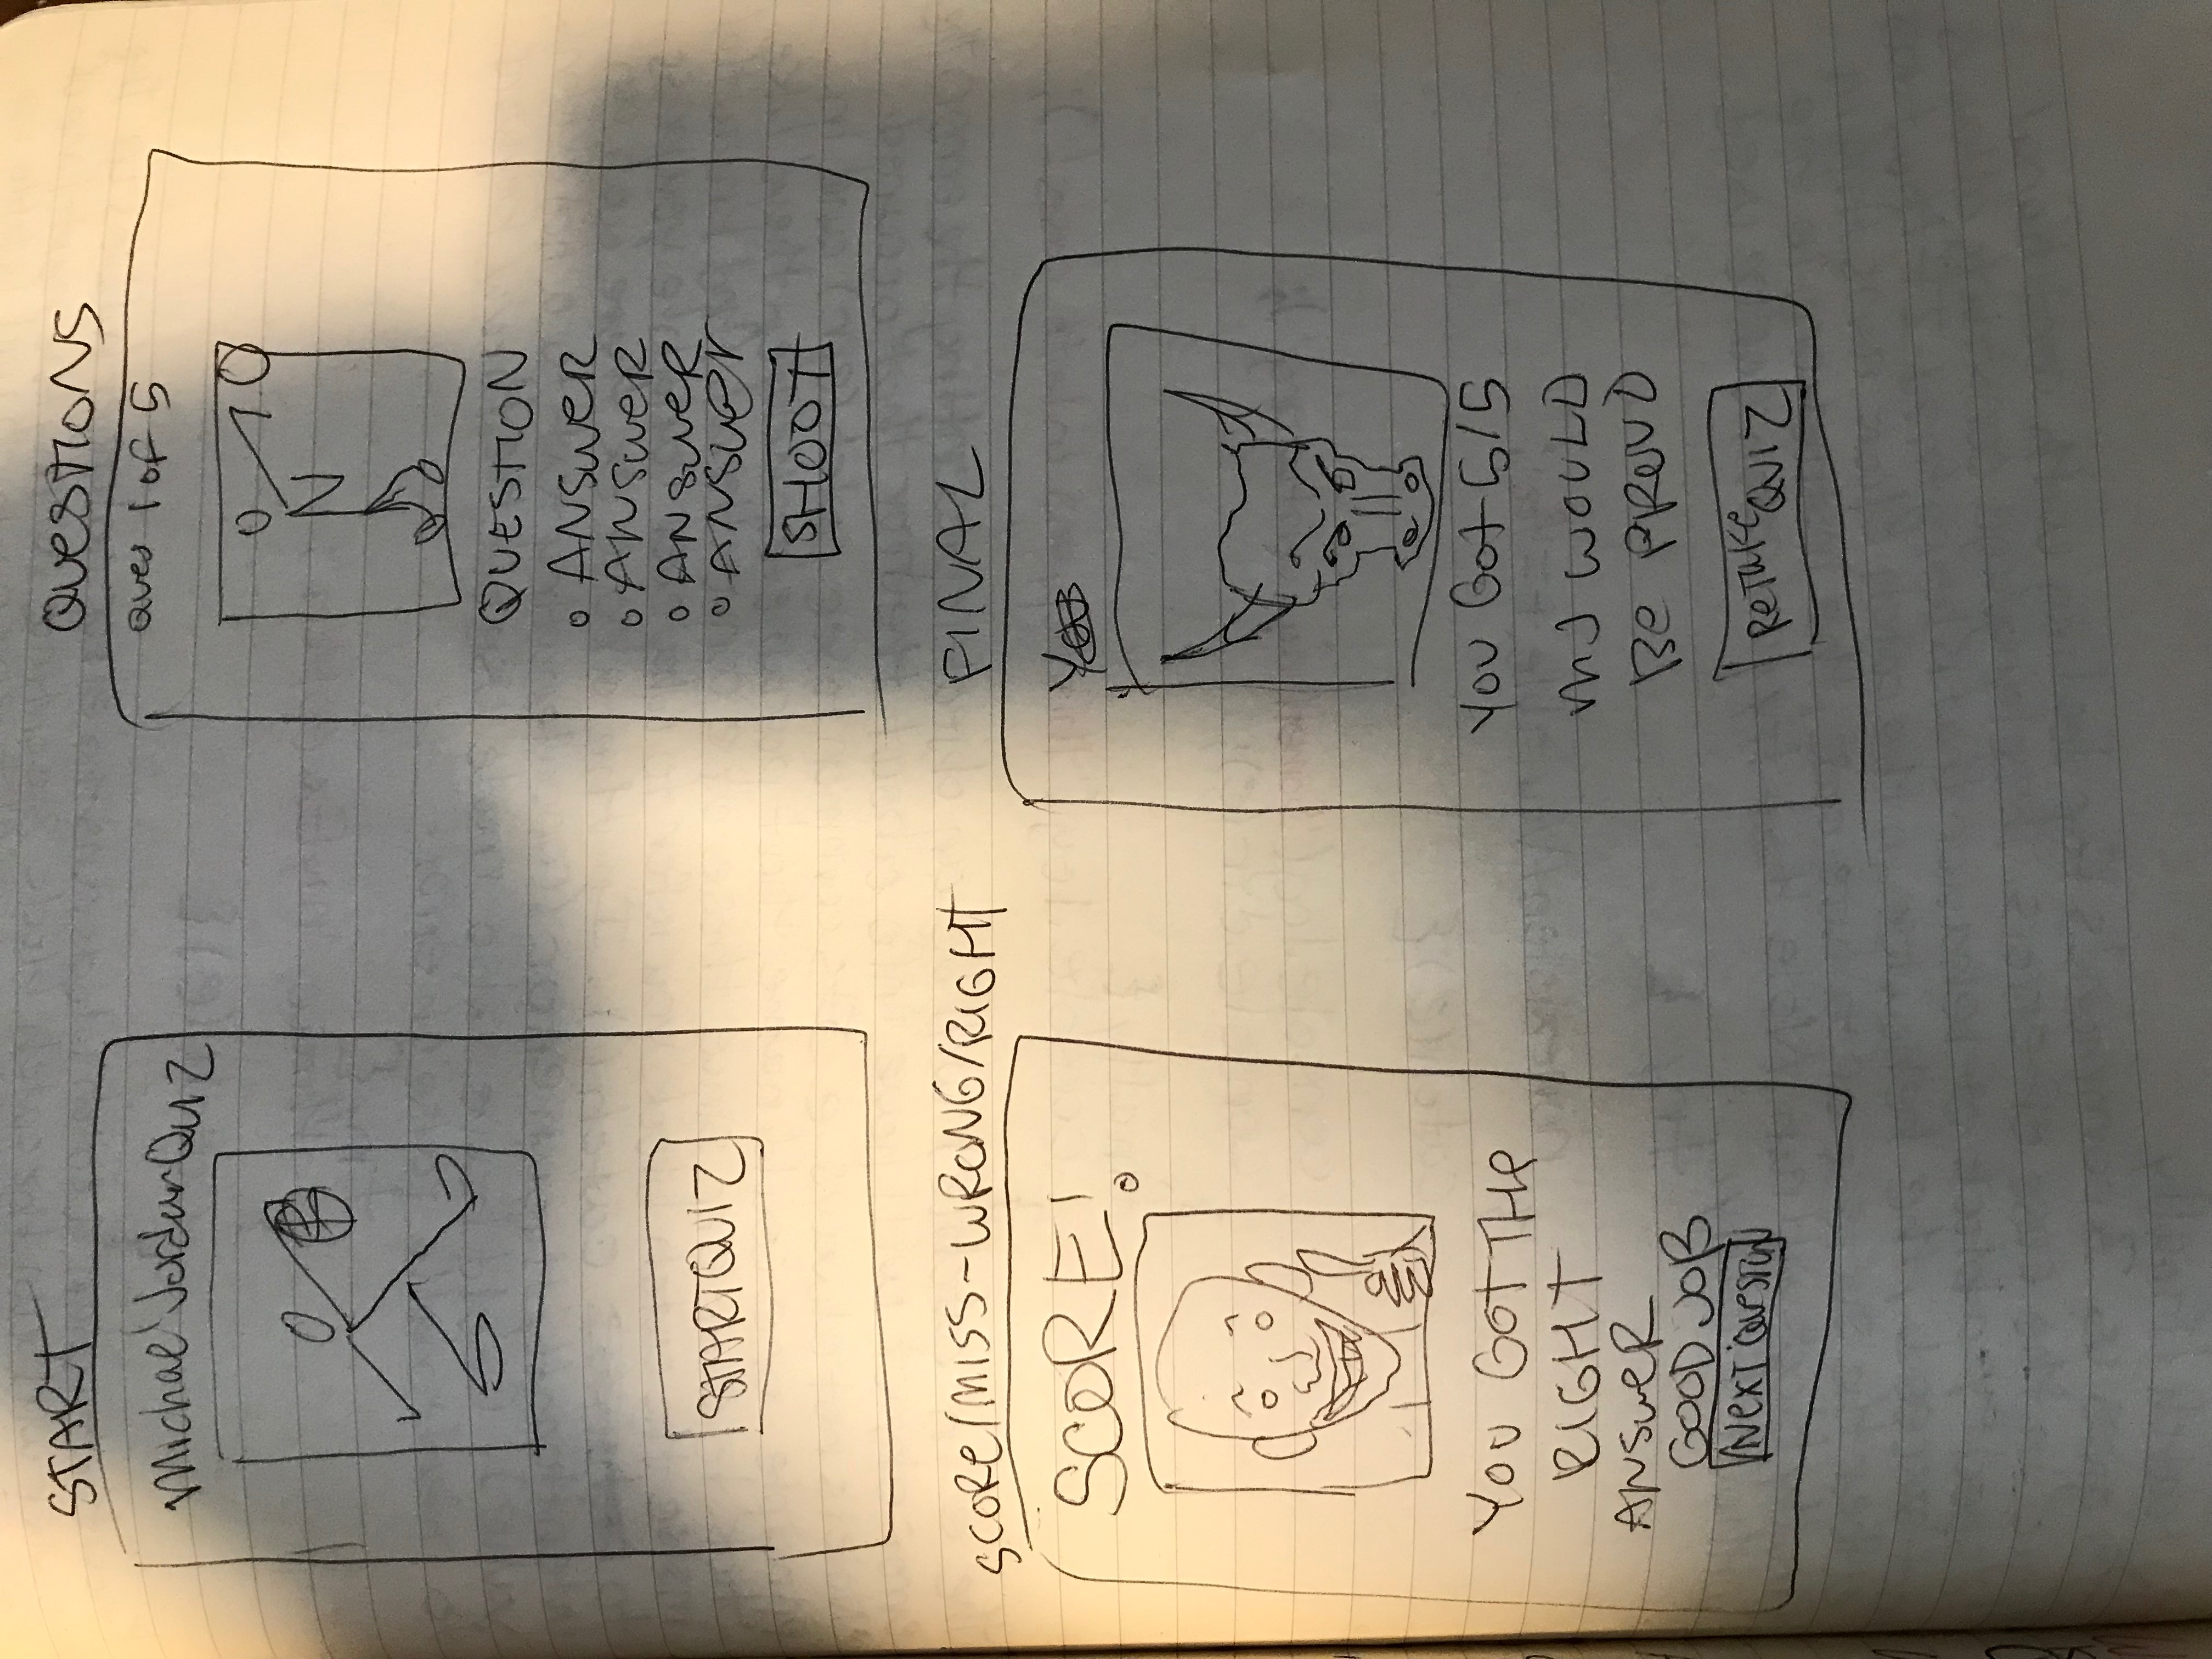 START
Michael Jordan Quiz
START QUIZ
QUESTIONS
Ques 1 of 5
QUESTION
ANSWER
ANSWER
ANSWER
ANSWER
SHOOT
SCORE/MISS-WRONG/RIGHT
SCORE!
YOU GOT THE
RIGHT
ANSWER
GOOD JOB
NEXT QUESTION
FINAL
YOU GOT 5/5
MJ WOULD
BE PROUD
RETAKE QUIZ